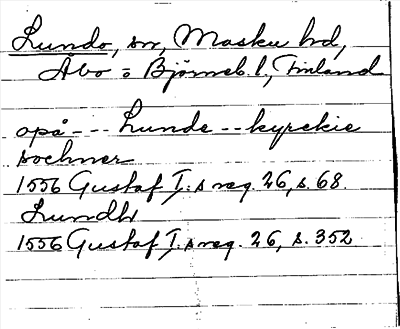 Lundo, sn, Masku hd,
Åbo = Björneb. l., Finland
opå - - - Lunde - - kyrckie
sochner
1556 Gustaf I:s reg. 26, s. 68.
Lundh
1556 Gustaf I:s reg. 26, s. 352